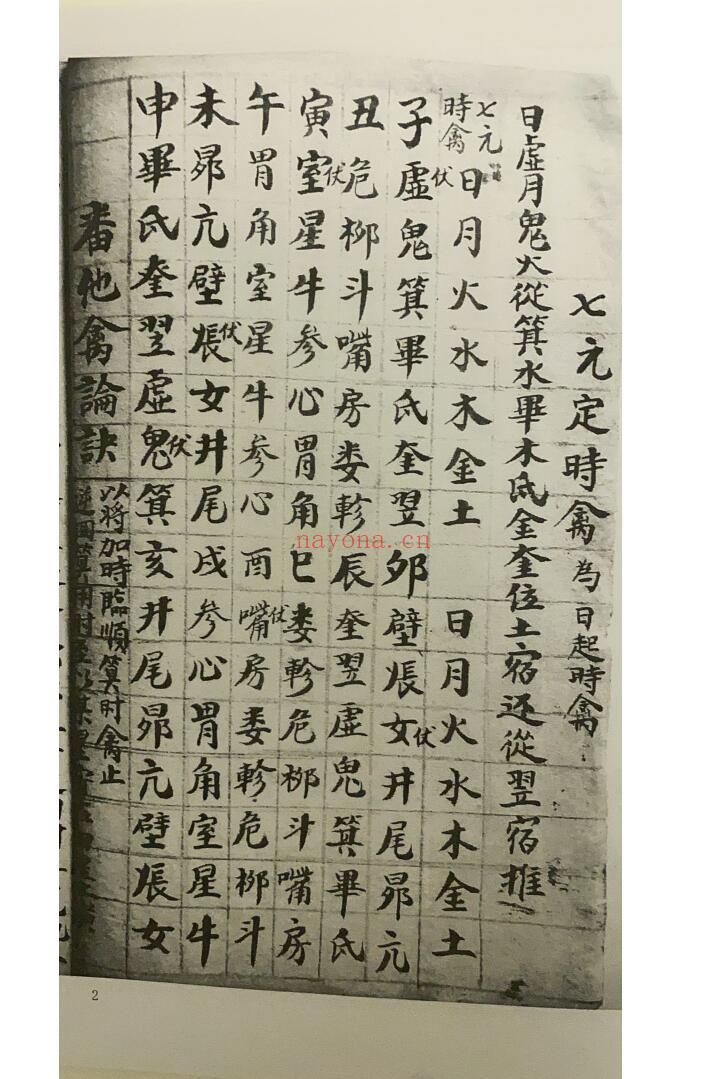 七元定時禽 為日起時禽
日虛月鬼火從箕水畢木氐金奎位土宿还從翌宿推
七元時禽 日月火水木金土 日月火水木金土
子虛伏鬼箕畢氐奎翌 卯壁張女伏井尾昴亢
丑危柳斗嘴房娄軫 辰奎翌虛鬼箕畢氐
寅室伏星牛参心胃角 巳娄軫危柳斗嘴房
午胃角室星牛参心 酉嘴伏房娄軫危柳斗
未昴亢壁張伏女井尾 戌参心胃角室星牛
申畢氐奎翌虛鬼伏箕 亥井尾昴亢壁張女
畨他禽論訣 以将加時臨順箕时禽止
nayona.cn
2